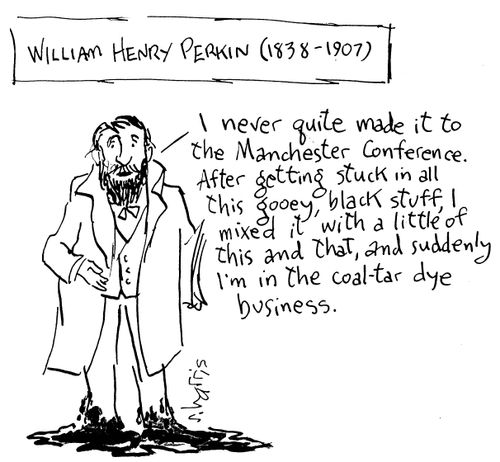 WILLIAM HENRY PERKIN (1838-1907)
I never quite made it to
the Manchester Conference.
After getting stuck in all
this gooey, black stuff, I
mixed it with a little of
this and that, and suddenly
I'm in the coal-tar dye
business.
s.harris